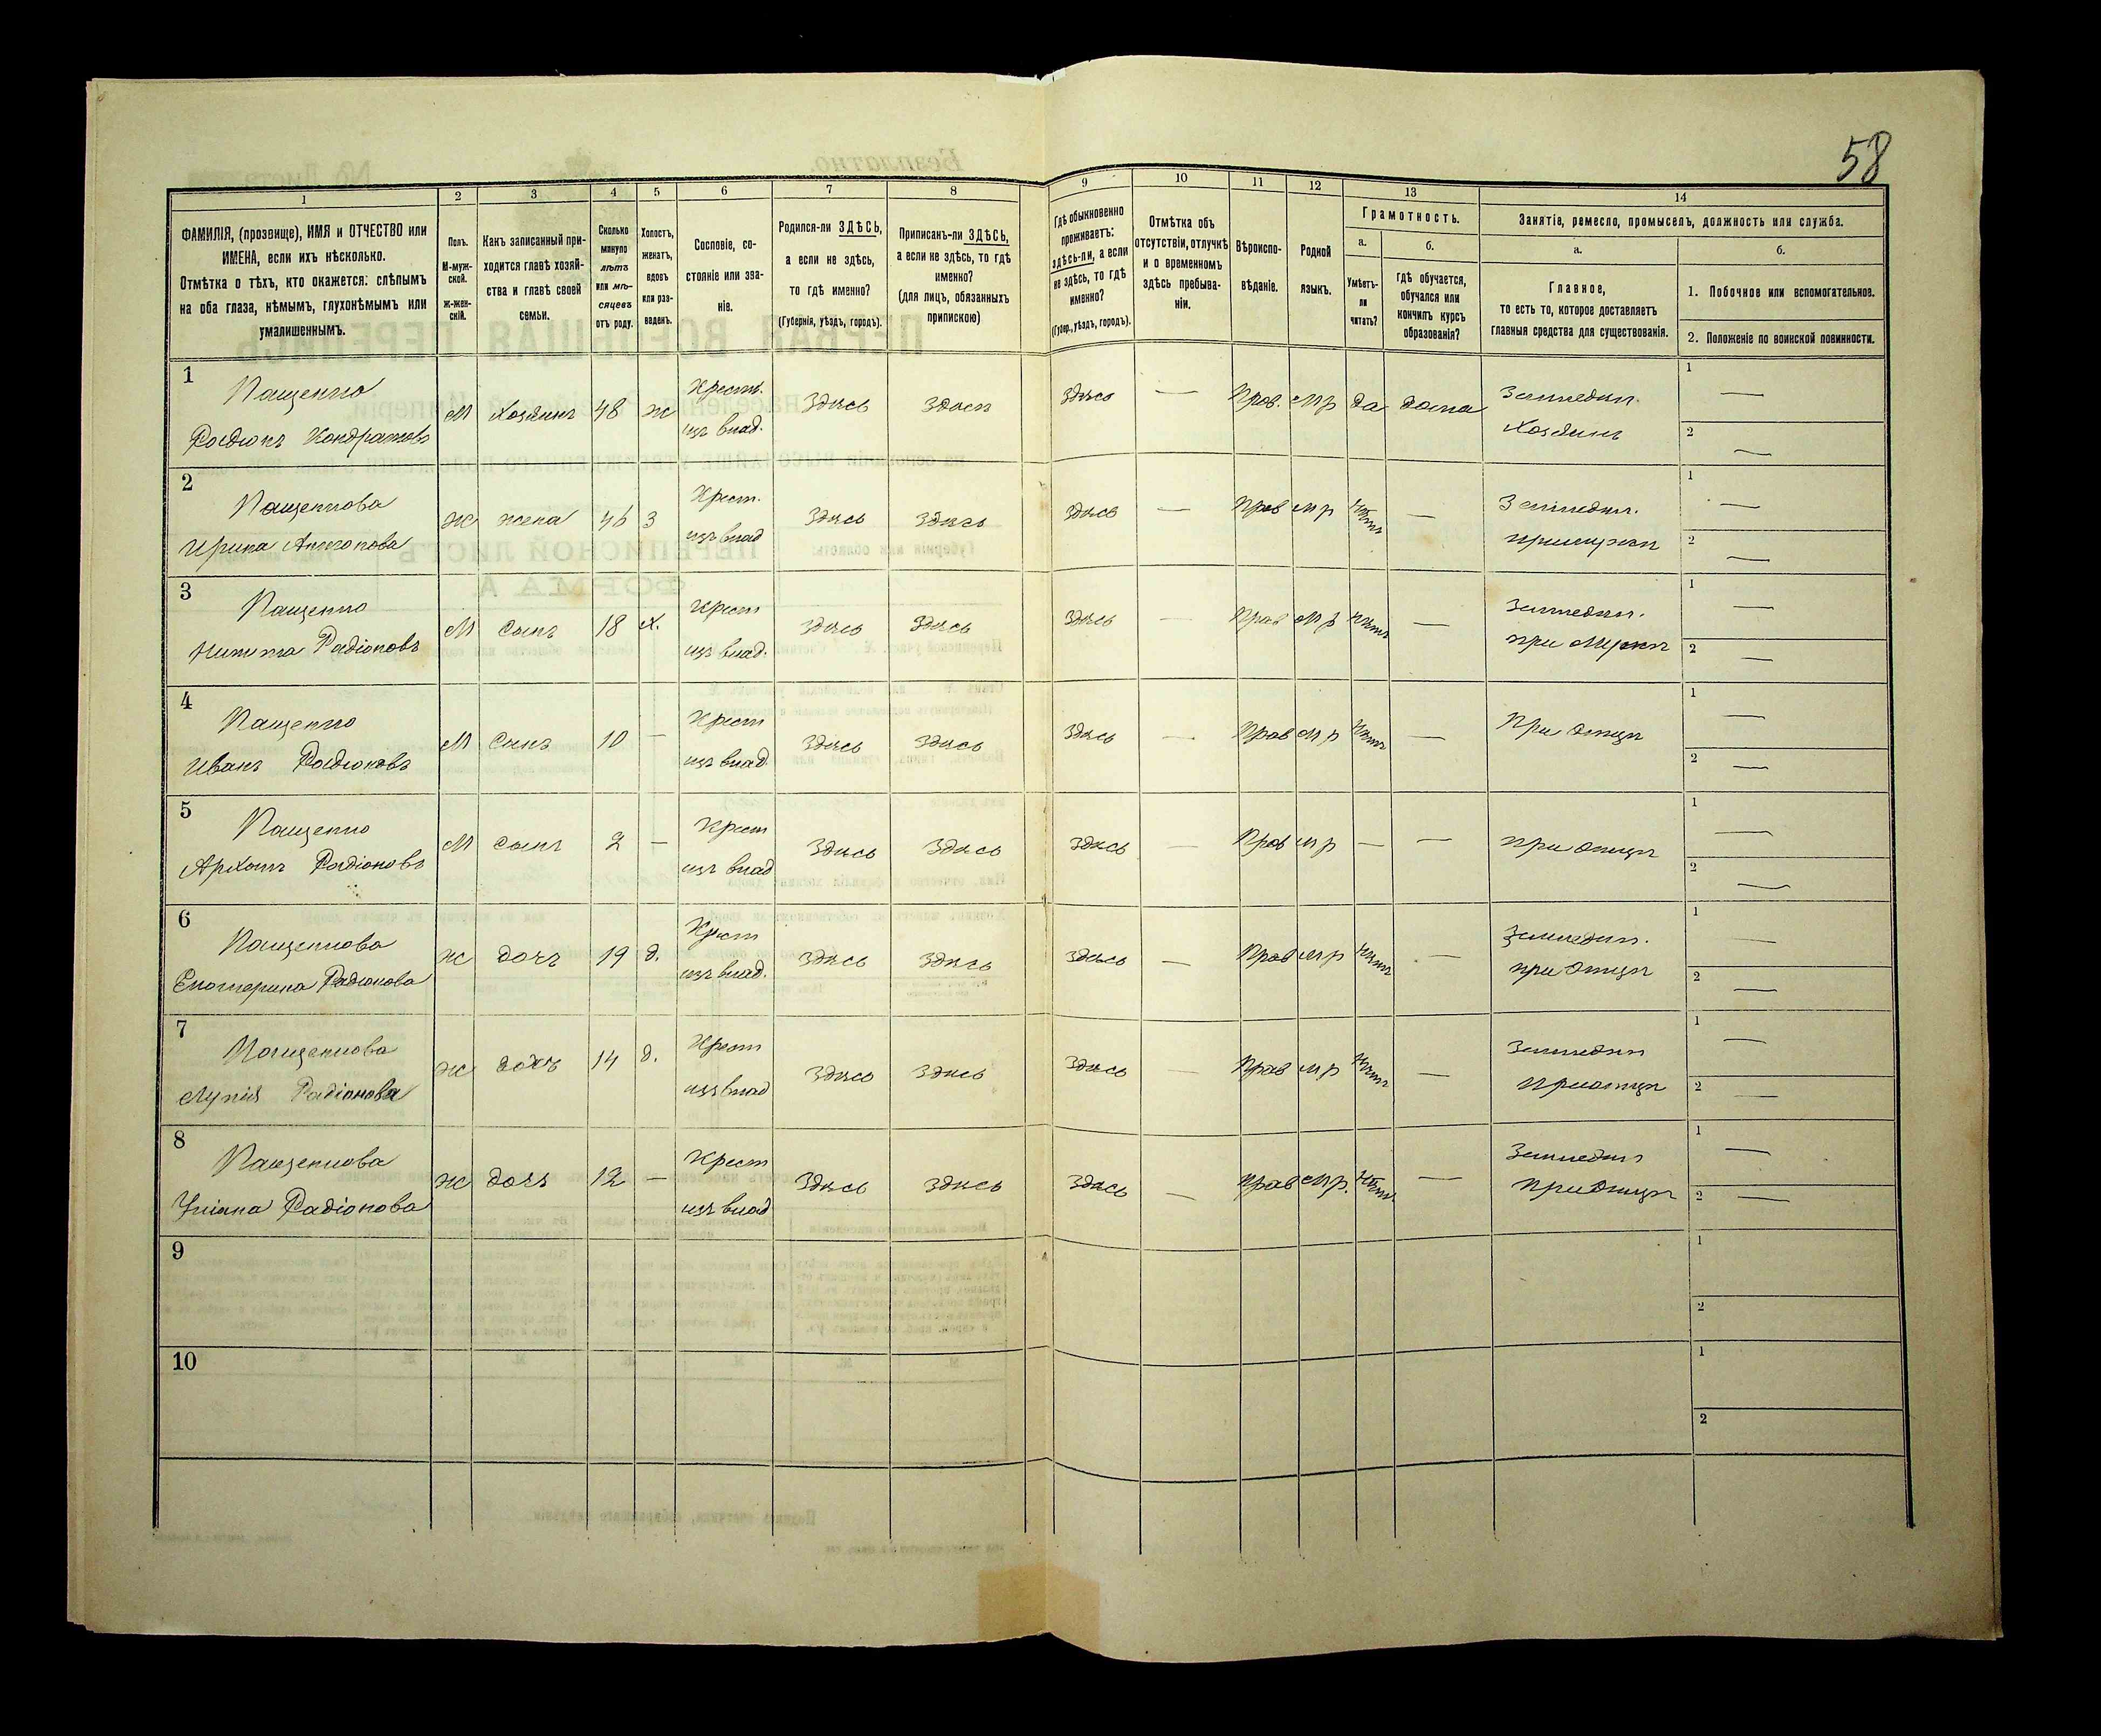 58
1 2 3 4 5 6 7 8 9 10 11 12 13 14
ФАМИЛІЯ, (прозвище), ИМЯ и ОТЧЕСТВО или
ИМЕНА, если ихъ нѣсколько.
Отмѣтка о тѣхъ, кто окажется: слѣпымъ
на оба глаза, нѣмымъ, глухонѣмымъ или
умалишеннымъ.
Полъ.
М-муж-
ской.
ж-жен-
скій.
Какъ записанный при-
ходится главѣ хозяй-
ства и главѣ своей
семьи.
Сколько
минуло
лѣтъ
или мѣ-
сяцевъ
отъ роду.
Холостъ,
женатъ,
вдовъ
или раз-
веденъ.
Сословіе, со-
стояніе или зва-
ніе.
Родился-ли ЗДѢСЬ,
а если не здѣсь,
то гдѣ именно?
(Губернія, уѣздъ, городъ).
Приписанъ-ли ЗДѢСЬ,
а если не здѣсь, то гдѣ
именно?
(для лицъ, обязанныхъ
припискою)
Гдѣ обыкновенно
проживаетъ:
здѣсь-ли, а если
не здѣсь, то гдѣ
именно?
(Губер., уѣздъ, городъ).
Отмѣтка объ
отсутствіи, отлучкѣ
и о временномъ
здѣсь пребыва-
ніи.
Вѣроиспо-
вѣданіе.
Родной
языкъ.
Грамотность.
а.
Умѣетъ-
ли
читать?
б.
гдѣ обучается,
обучался или
кончилъ курсъ
образованія?
Занятіе, ремесло, промыселъ, должность или служба.
а.
Главное,
то есть то, которое доставляетъ
главныя средства для существованія.
б.
1. Побочное или вспомогательное.
2. Положеніе по воинской повинности.
1
Пащенко Крест. Землед.
Радіонъ Кондратовъ М Хозяинъ 48 ж изъ влад. Здѣсь Здѣсь Здѣсь — Прав. мр да дома Хозяинъ
1 —
2 —
2
Пащенкова Крест. Землед.
Ирина Антонова Ж жена 46 З изъ влад Здѣсь Здѣсь Здѣсь — Прав мр нѣтъ — при мужѣ
1 —
2 —
3
Пащенко Крест Землед.
Никита Радіоновъ М Сынъ 18 х. изъ влад. Здѣсь Здѣсь Здѣсь — Прав мр нѣтъ —
1 —
2 —
4
Пащенко Крест При отцѣ
Иванъ Радіоновъ М Сынъ 10 — изъ влад. Здѣсь Здѣсь Здѣсь — Прав мр нѣтъ —
1 —
2 —
5
Пащенко Крест при отцѣ
Радіоновъ М сынъ 2 — изъ влад Здѣсь Здѣсь Здѣсь — Прав мр — —
1 —
2 —
6
Пащенкова Крест Землед.
Екатерина Радіонова ж дочь 19 д. изъ влад. Здѣсь Здѣсь Здѣсь — Прав мр нѣтъ — при отцѣ
1 —
2 —
7
Пащенкова Крест Землед
Радіонова ж дочь 14 д. изъ влад Здѣсь Здѣсь Здѣсь — Прав мр нѣтъ — при отцѣ
1 —
2 —
8
Пащенкова Крест Землед
Уліана Радіонова ж дочь 12 — изъ влад Здѣсь Здѣсь Здѣсь — Прав мр. нѣтъ — При отцѣ
1 —
2 —
9
1
2
10
1
2